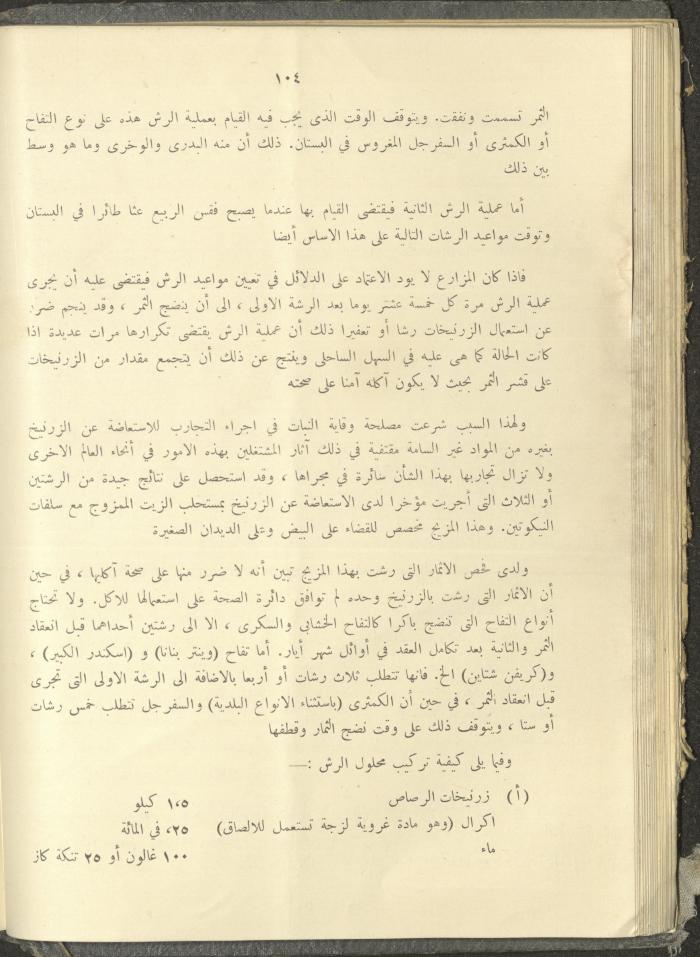 ١٠٤
الثمر تسممت ونفقت. ويتوقف الوقت الذى يجب فيه القيام بعملية الرش هذه على نوع التفاح
أو الكمثرى أو السفرجل المغروس في البستان. ذلك أن منه البدرى والوخرى وما هو وسط
بين ذلك
أما عملية الرش الثانية فيقتضى القيام بها عندما يصبح فقس الربيع عثا طائرا في البستان
وتوقت مواعيد الرشات التالية على هذا الاساس أيضا
فاذا كان المزارع لا يود الاعتماد على الدلائل في تعيين مواعيد الرش فيقتضى عليه أن يجرى
عملية الرش مرة كل خمسة عشر يوما بعد الرشة الاولى ، الى أن ينضج الثمر ، وقد ينجم ضرر
عن استعمال الزرنيخات رشا أو تعفيرا ذلك أن عملية الرش يقتضى تكرارها مرات عديدة اذا
كانت الحالة كما هى عليه في السهل الساحلى وينتج عن ذلك أن يتجمع مقدار من الزرنيخات
على قشر الثمر بحيث لا يكون آكله آمنا على صحته
ولهذا السبب شرعت مصلحة وقاية النبات في اجراء التجارب للاستعاضة عن الزرنيخ
بغيره من المواد غير السامة مقتفية في ذلك آثار المشتغلين بهذه الامور في أنحاء العالم الاخرى
ولا تزال تجاربها بهذا الشأن سائرة في مجراها ، وقد استحصل على نتائج جيدة من الرشتين
أو الثلاث التى أجريت مؤخرا لدى الاستعاضة عن الزرنيخ بمستحلب الزيت الممزوج مع سلفات
النيكوتين. وهذا المزيج مخصص للقضاء على البيض وعلى الديدان الصغيرة
ولدى فحص الاثمار التى رشت بهذا المزيج تبين أنه لا ضرر منها على صحة آكليها ، في حين
أن الاثمار التى رشت بالزرنيخ وحده لم توافق دائرة الصحة على استعمالها للاكل. ولا تحتاج
أنواع التفاح التى تنضج باكرا كالتفاح الخشابى والسكرى ، الا الى رشتين أحداهما قبل انعقاد
الثمر والثانية بعد تكامل العقد في أوائل شهر أيار. أما تفاح (وينتر بنانا) و (اسكندر الكبير) ،
و(كريفن شتاين) الخ. فانها تتطلب ثلاث رشات أو أربعا بالاضافة الى الرشة الاولى التى تجرى
قبل انعقاد الثمر ، في حين أن الكمثرى (باستثناء الانواع البلدية) والسفرجل تتطلب خمس رشات
أو ستا ، ويتوقف ذلك على وقت نضج الثمار وقطفها
وفيما يلى كيفية تركيب محلول الرش :—
(أ) زرنيخات الرصاص ١،٥ كيلو
اكرال (وهو مادة غروية لزجة تستعمل للالصاق) ٢٥، في المائة
ماء ١٠٠ غالون أو ٢٥ تنكة كاز